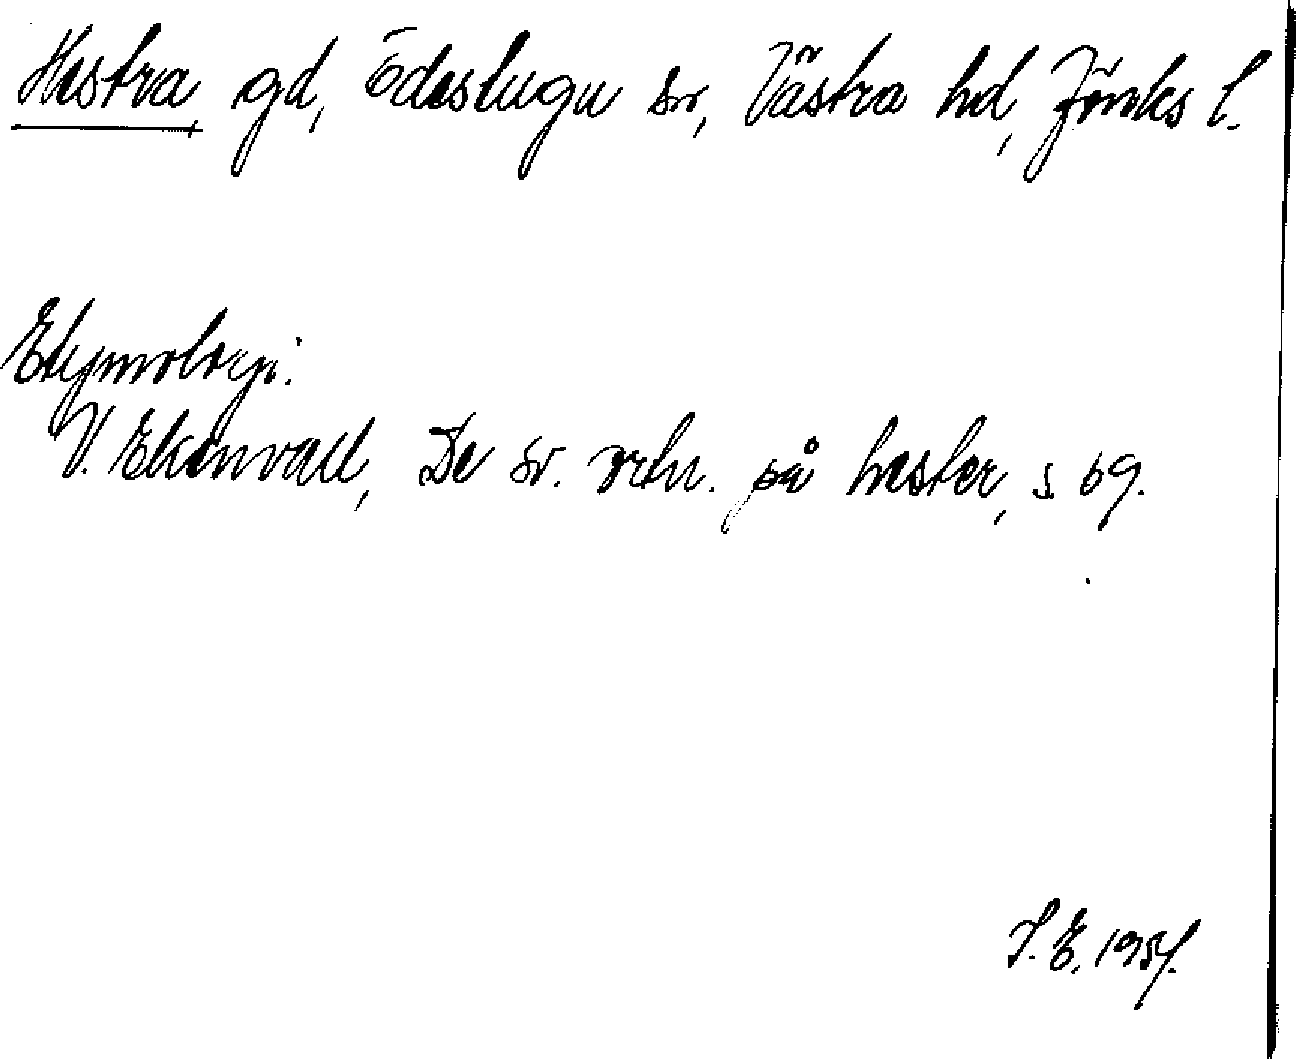 Hestra, gd, Ödestugu sn, Västra hd, Jönks l.
Etymologi:
V. Ekenvall, De sv. ortn. på hester, s 69.
S. E. 1954.